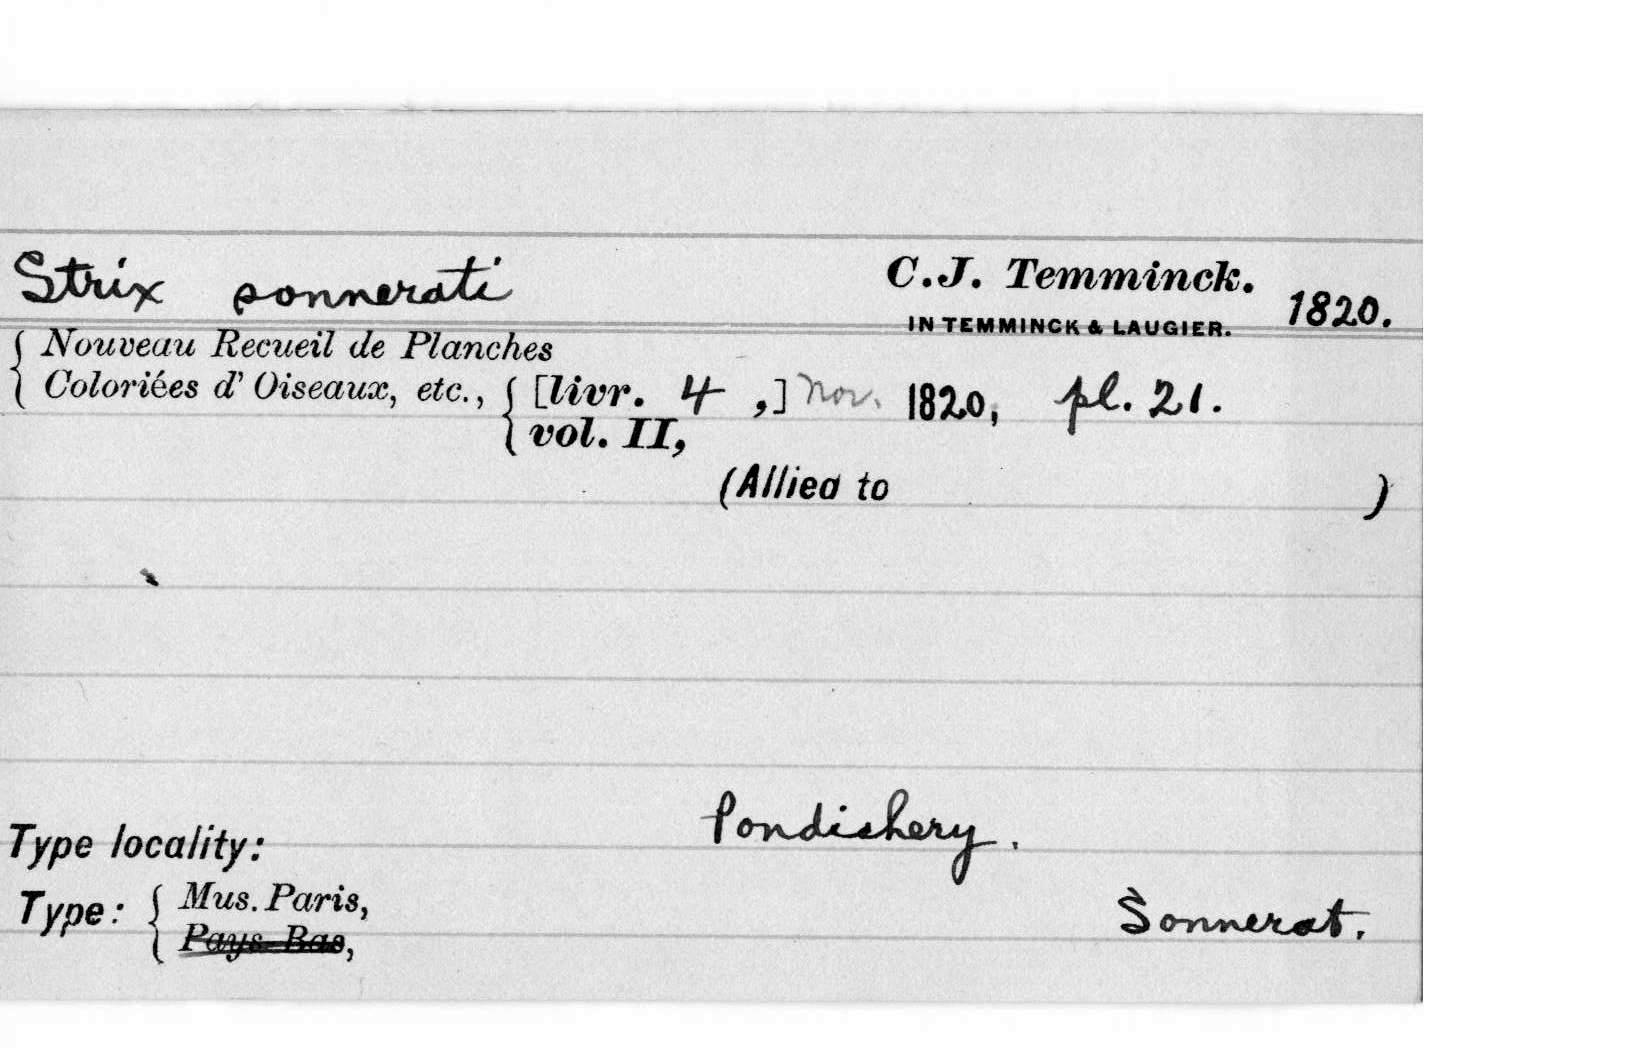 Strix sonnerati C.J. Temminck. 1820.
IN TEMMINCK & LAUGIER.
{ Nouveau Recueil de Planches
Coloriées d' Oiseaux, etc., { [livr. 4 ,] Nov. 1820, pl. 21.
vol. II,
(Allied to )
Type locality: Pondichery.
Type: { Mus. Paris, Sonnerat.
Pays-Bas,